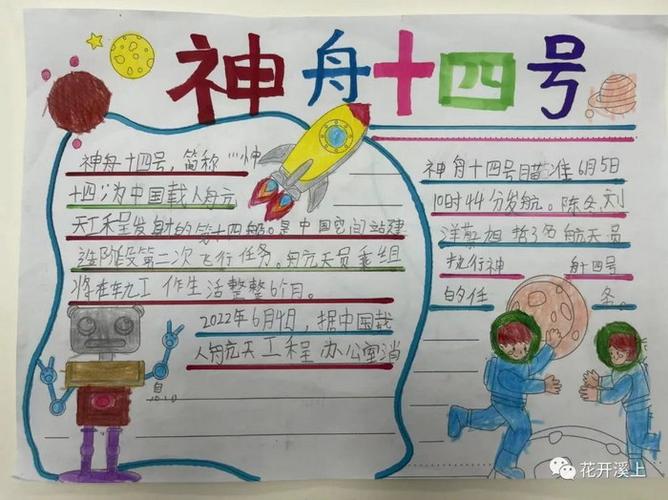 神舟十四号
神舟十四号，简称“神
十四”为中国载人航天
天工程发射的第十四船。是中国空间站建
造阶段第二次飞行任务。航天员乘组
将在轨工作生活整整6个月。
2022年6月4日，据中国载
人航天工程办公室消
息
神舟十四号瞄准6月5日
10时44分发航。陈冬、刘
洋蔡旭哲3名航天员
执行神 舟十四号
的任 务。
花开溪上